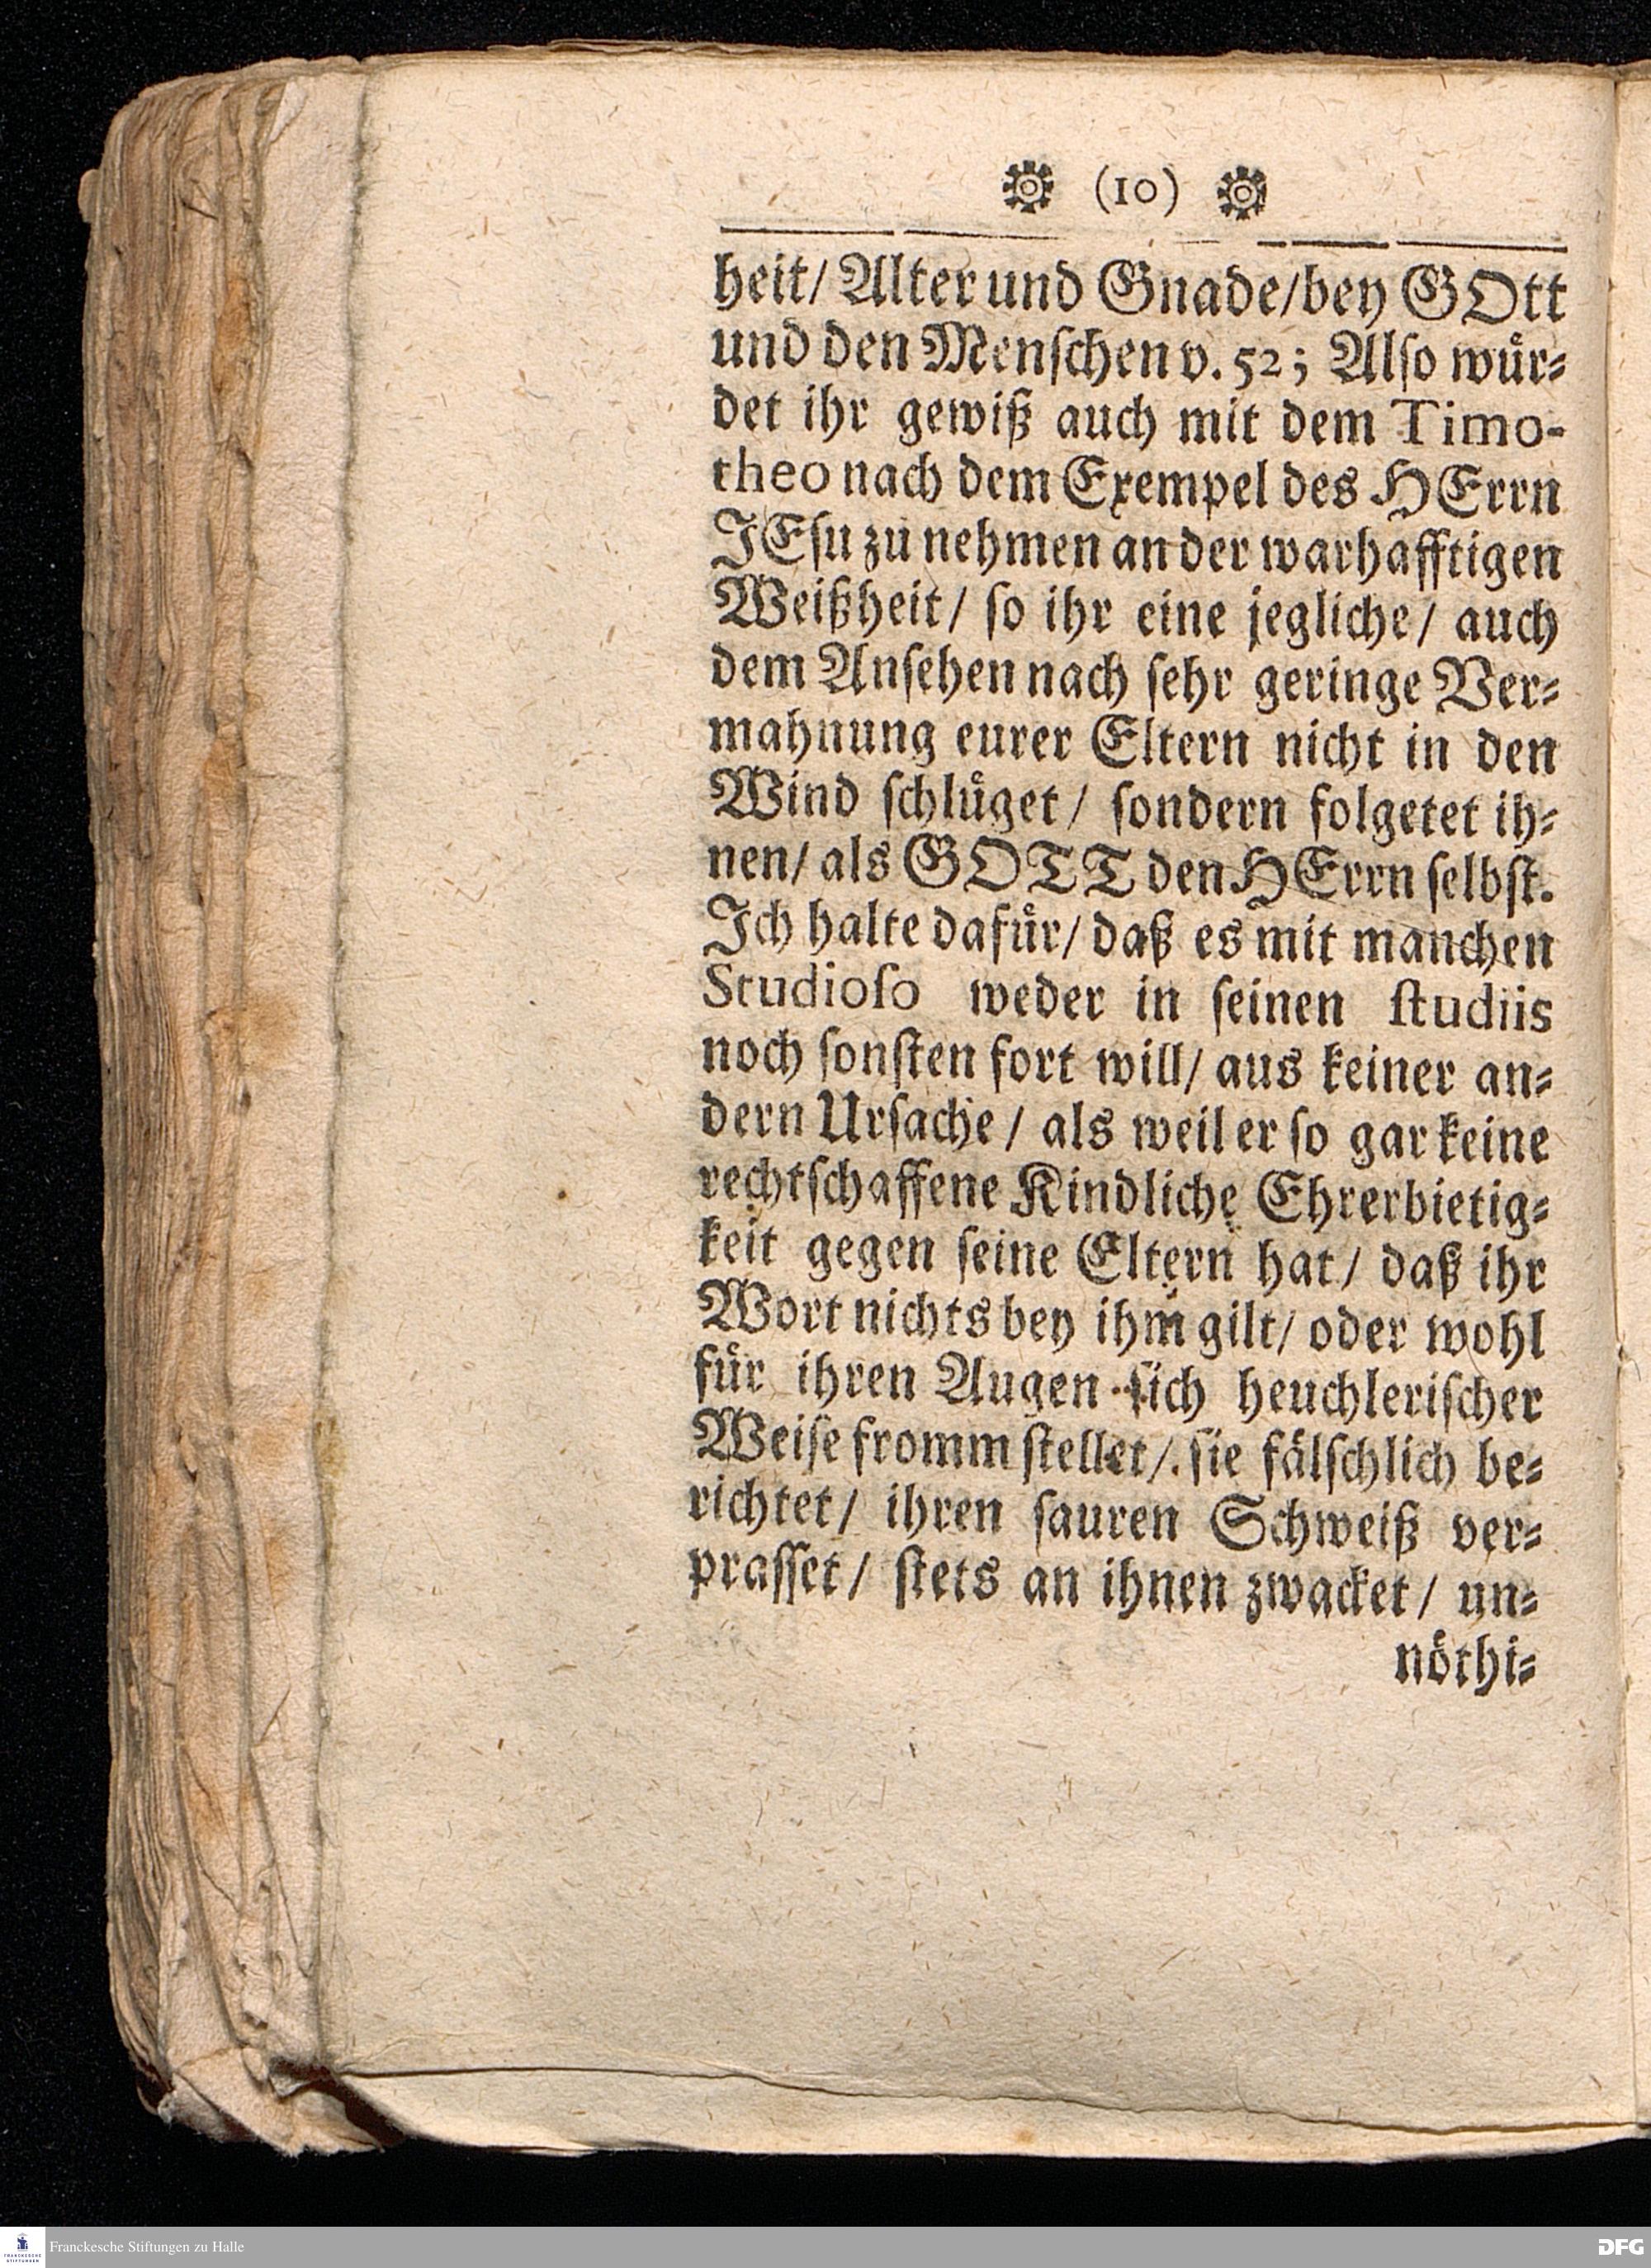 (10)
heit/ Alter und Gnade/bey GOtt
und den Menſchen v. 52; Alſo wuͤr⸗
det ihr gewiß auch mit dem Timo-
theo nach dem Exempel des HErrn
JEſu zu nehmen an der warhafftigen
Weißheit/ ſo ihr eine jegliche/ auch
dem Anſehen nach ſehr geringe Ver⸗
mahnung eurer Eltern nicht in den
Wind ſchluͤget/ ſondern folgetet ih⸗
nen/ als GOTT den HErrn ſelbſt.
Ich halte dafuͤr/ daß es mit manchen
Studioſo weder in ſeinen ſtudiis
noch ſonſten fort will/ aus keiner an⸗
dern Urſache/ als weil er ſo gar keine
rechtſchaffene Kindliche Ehrerbietig⸗
keit gegen ſeine Eltern hat/ daß ihr
Wort nichts bey ihm gilt/ oder wohl
fuͤr ihren Augen ſich heuchleriſcher
Weiſe fromm ſtellet/ ſie faͤlſchlich be⸗
richtet/ ihren ſauren Schweiß ver⸗
praſſet/ ſtets an ihnen zwacket/ un⸗
noͤthi⸗
FRANCKESCHE STIFTUNGEN
Franckesche Stiftungen zu Halle
DFG